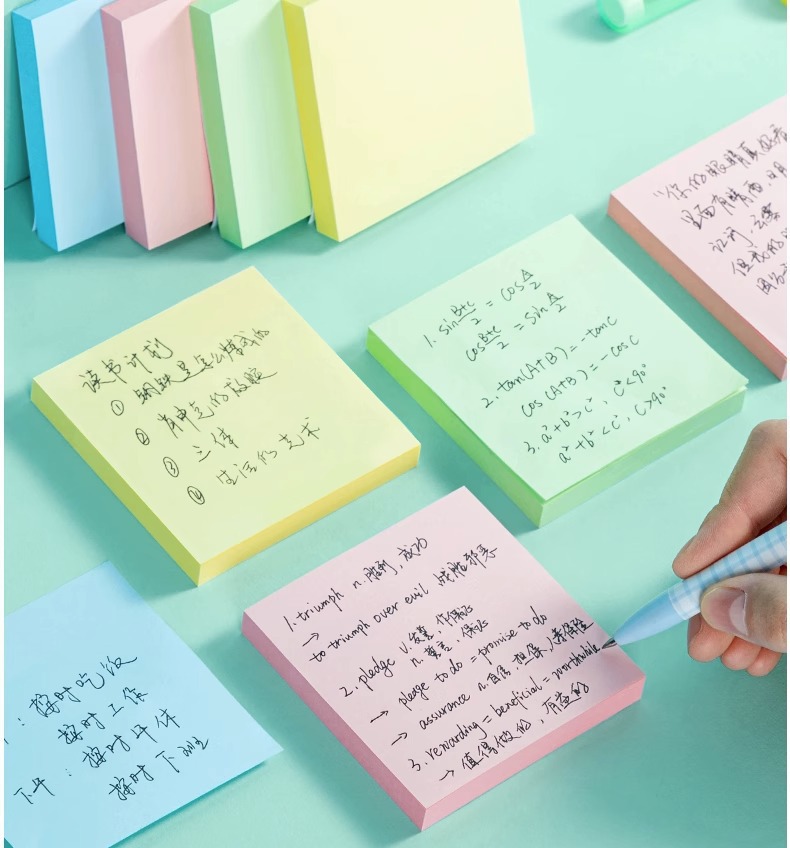 读书计划
① 钢铁是怎么炼成的
②
③ 三体
④ 生活的艺术
1. sin B+C/2 = cos A/2
cos B+C/2 = sin A/2
2. tan(A+B) = -tanC
cos(A+B) = -cosC
3. a²+b²>c², C<90°
a²+b²<c², C>90°
"你的眼睛真好看
里面有晴雨, 日月
但我的
1. triumph n. 胜利, 成功
→ to triumph over evil 战胜邪恶
2. pledge v. 发誓, 作保证
n. 誓言, 保证
→ pledge to do = promise to do
→ assurance n. 自信, 担保, 人寿保险
3. rewarding = beneficial = worthwhile
→ 值得做的, 有益的
: 按时吃饭
按时工作
下午: 按时午休
按时下班